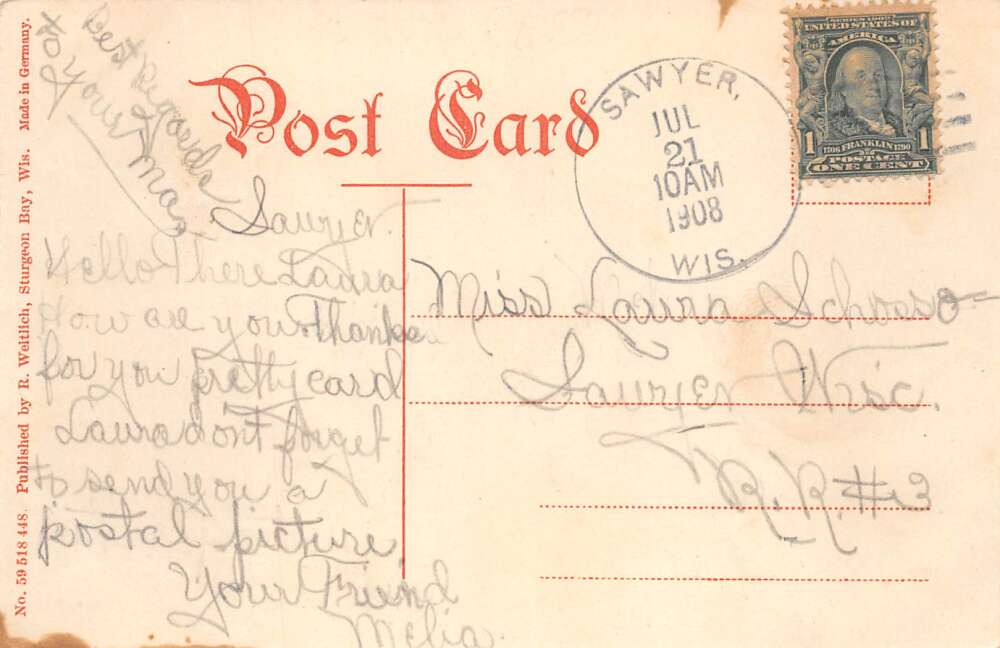 Post Card
SAWYER,
JUL
21
10AM
1908
WIS.
SERIES 1902
UNITED STATES OF
AMERICA
1 1
1706 FRANKLIN 1790
POSTAGE
ONE CENT
Best Regards
to Your Ma
Sawyer.
Hello There Laura
How are you Thanks
for you pretty card
Laura dont forget
to send you a
postal picture
Your Friend
Melia.
Miss Laura
Sawyer Wisc.
R.R.#3
No. 59 518 448. Published by R. Weitlich, Sturgeon Bay, Wis. Made in Germany.